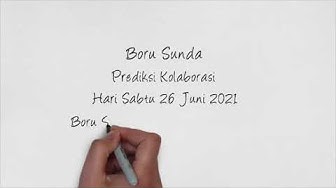 Boru Sunda
Prediksi Kolaborasi
Hari Sabtu 26 Juni 2021
Boru S